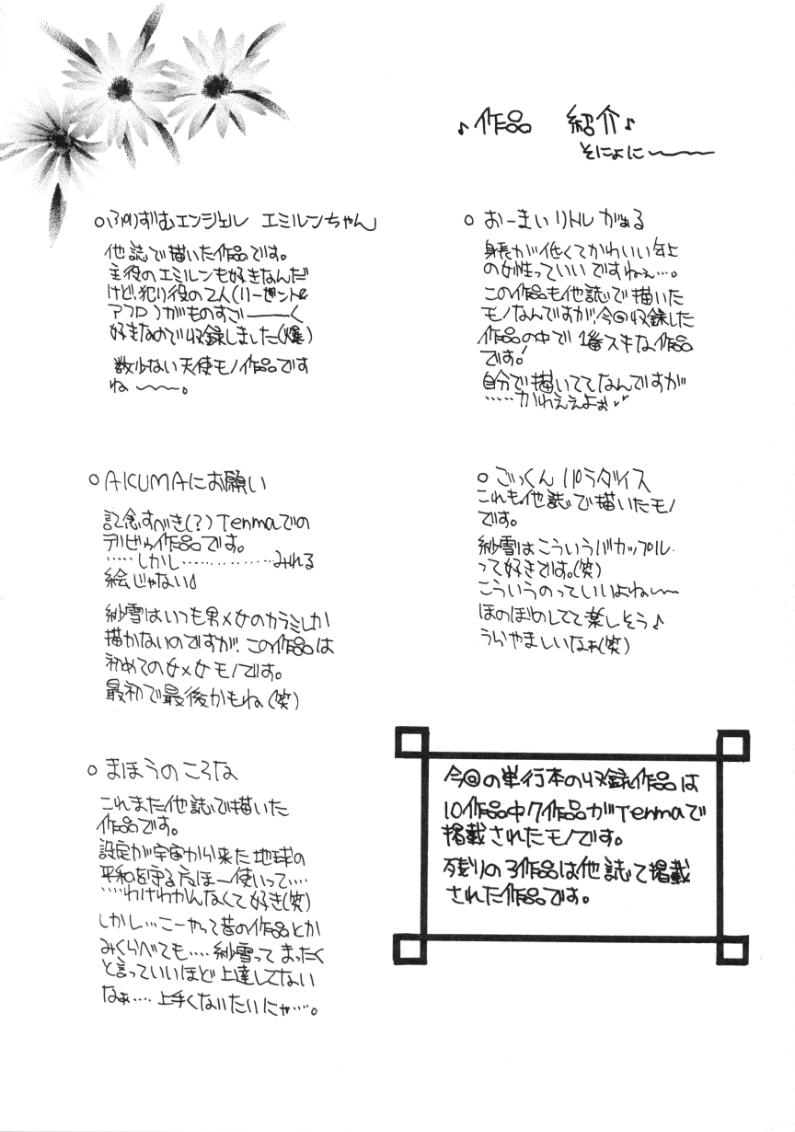 ♪作品　紹介♪
そにょに〜〜
○ぷりずむエンジェル　エミルンちゃん
他誌で描いた作品です。
主役のエミルンも好きなんだ
けど、犯り役の2人(リーゼントと
アフロ)がものすごーーく
好きなので収録しました(爆)
数少ない天使モノ作品です
ね〜〜。
○AKUMAにお願い
記念すべき(?)Tenmaでの
デビゥ作品です。
……しかし……………みれる
絵じゃない
紗雪はいつも男×女のカラミしか
描かないのですが、この作品は
初めての女×女モノです。
最初で最後かもね(笑)
○まほうのころな
これまた他誌で描いた
作品です。
設定が宇宙から来た地球の
平和を守るまほー使いって‥‥
‥‥わけわかんなくて好き(笑)
しかし…こーやって昔の作品とか
みくらべても‥‥紗雪ってまったく
と言っていいほど上達してない
なぁ‥‥上手くなりたいにゃ‥‥。
○おーまいリトルがぁる
身長が低くてかわいい年上
の女性っていいですねぇ…。
この作品も他誌で描いた
モノなんですが、今回収録した
作品の中で1番スキな作品
です!
自分で描いててなんですが
‥‥‥かわええよぉ
○ごっくんパラダイス
これも他誌で描いたモノ
です。
紗雪はこういうバカップル
って好きです。(笑)
こういうのっていいよね〜
ほのぼのしてて楽しそう♪
うらやましいなぁ(笑)
今回の単行本の収録作品は
10作品中7作品がTenmaで
掲載されたモノです。
残りの3作品は他誌で掲載
された作品です。